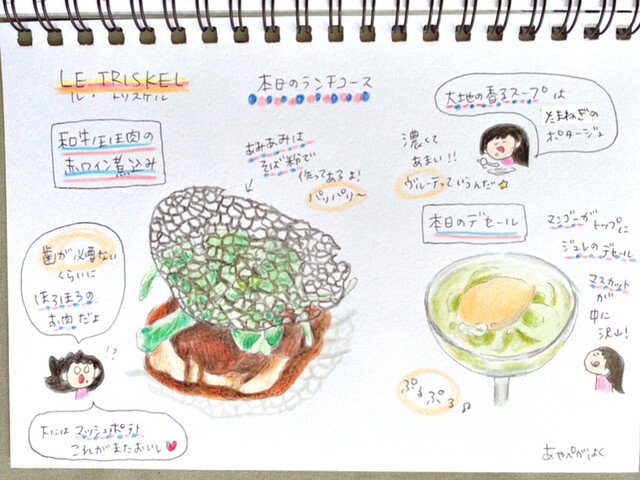 LE TRISKEL
ル・トリスケル
本日のランチコース
和牛ほほ肉の
赤ワイン煮込み
あみあみは
そば粉で
作ってあるよ!
パリパリ〜
歯が必要ない
くらいに
ほろほろの
お肉だよ
!?
下にはマッシュポテト、
これがまたおいし
大地の香るスープは
たまねぎの
ポタージュ
濃くて
あまい!!
ヴルーテっていうんだ
本日のデセール
マンゴーがトップに
ジュレのデセール
マスカット
が
中に
沢山!
ぷるぷる♪